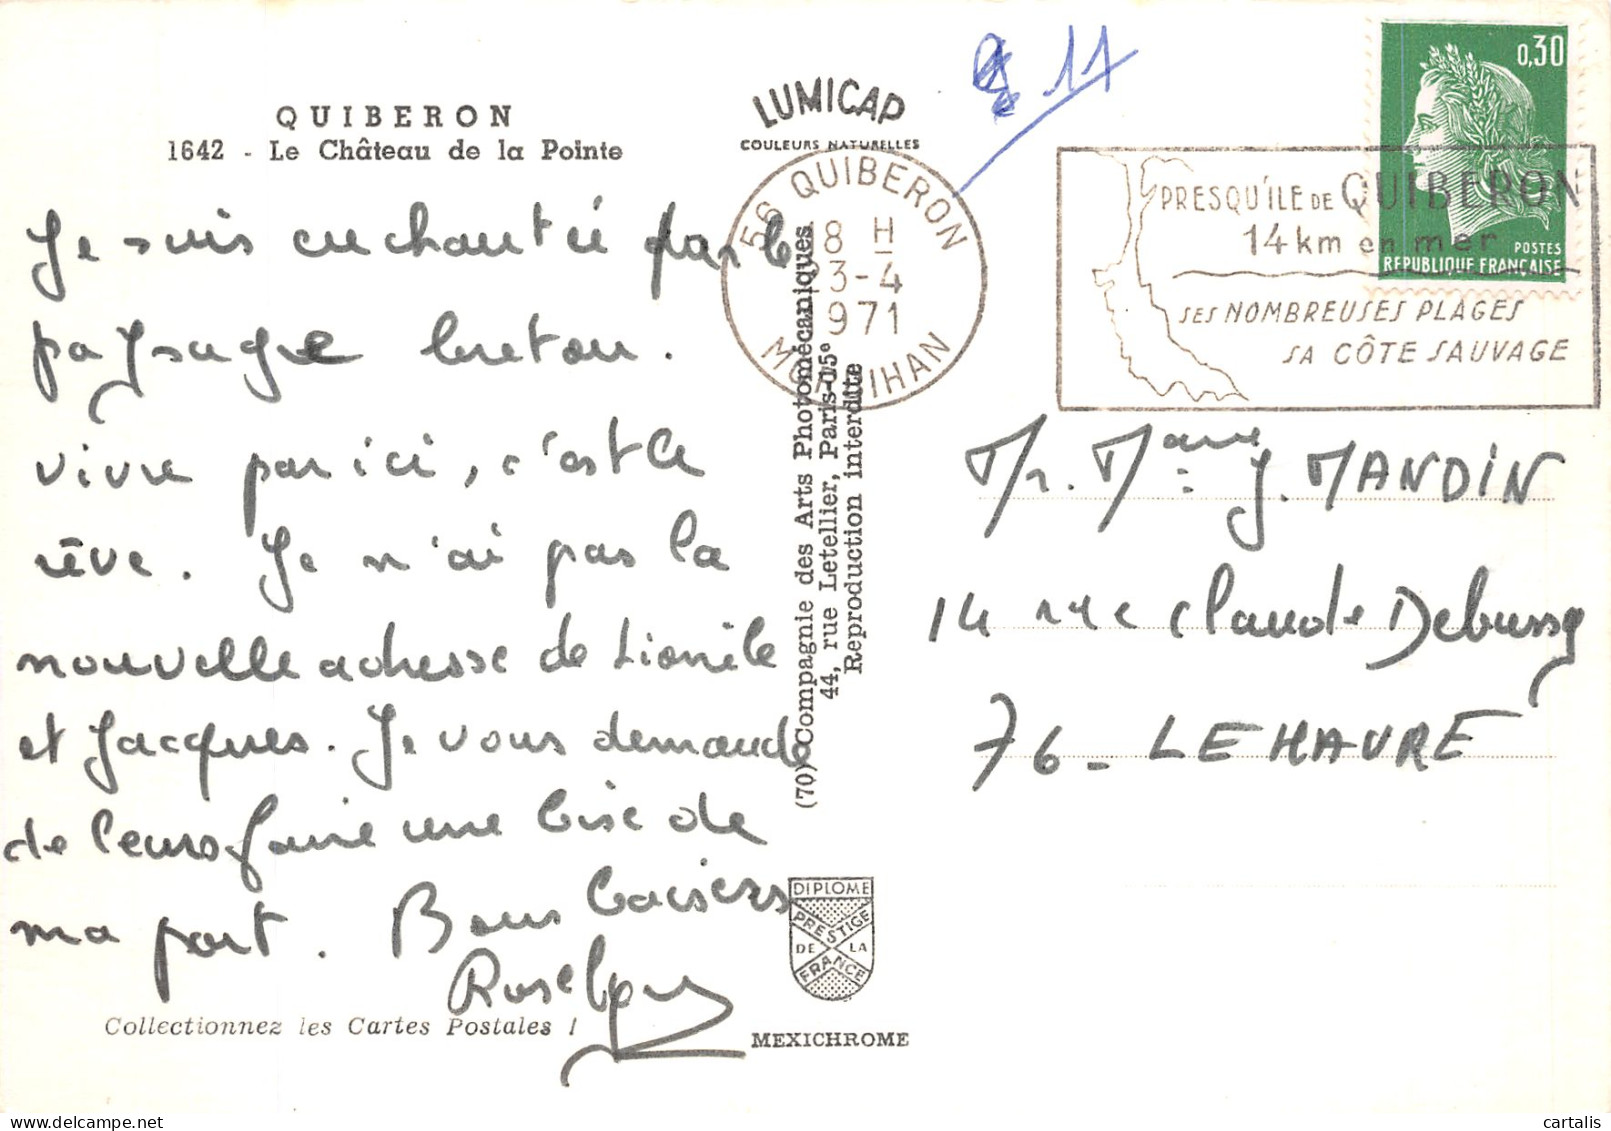 QUIBERON
1642 - Le Château de la Pointe
Je suis enchantée par le
paysage breton.
vivre par ici, c'est le
rêve. Je n'ai pas la
nouvelle adresse de Lionèle
et Jacques. Je vous demande
de leurs faire une bise de
ma part. Bons baisers
Collectionnez les Cartes Postales !
LUMICAP
COULEURS NATURELLES
11
56 QUIBERON
18 H
3-4
1971
MORBIHAN
(70) Compagnie des Arts Photomécaniques
44, rue Letellier, Paris-15e
Reproduction interdite
DIPLOME
PRESTIGE
DE LA
FRANCE
MEXICHROME
0,30
POSTES
REPUBLIQUE FRANÇAISE
PRESQU'ILE DE QUIBERON
14 km en mer
SES NOMBREUSES PLAGES
SA CÔTE SAUVAGE
Mr. Mme J. MANDIN
14 rue Claude Debussy
76 - LE HAVRE
cartalis
www.delcampe.net